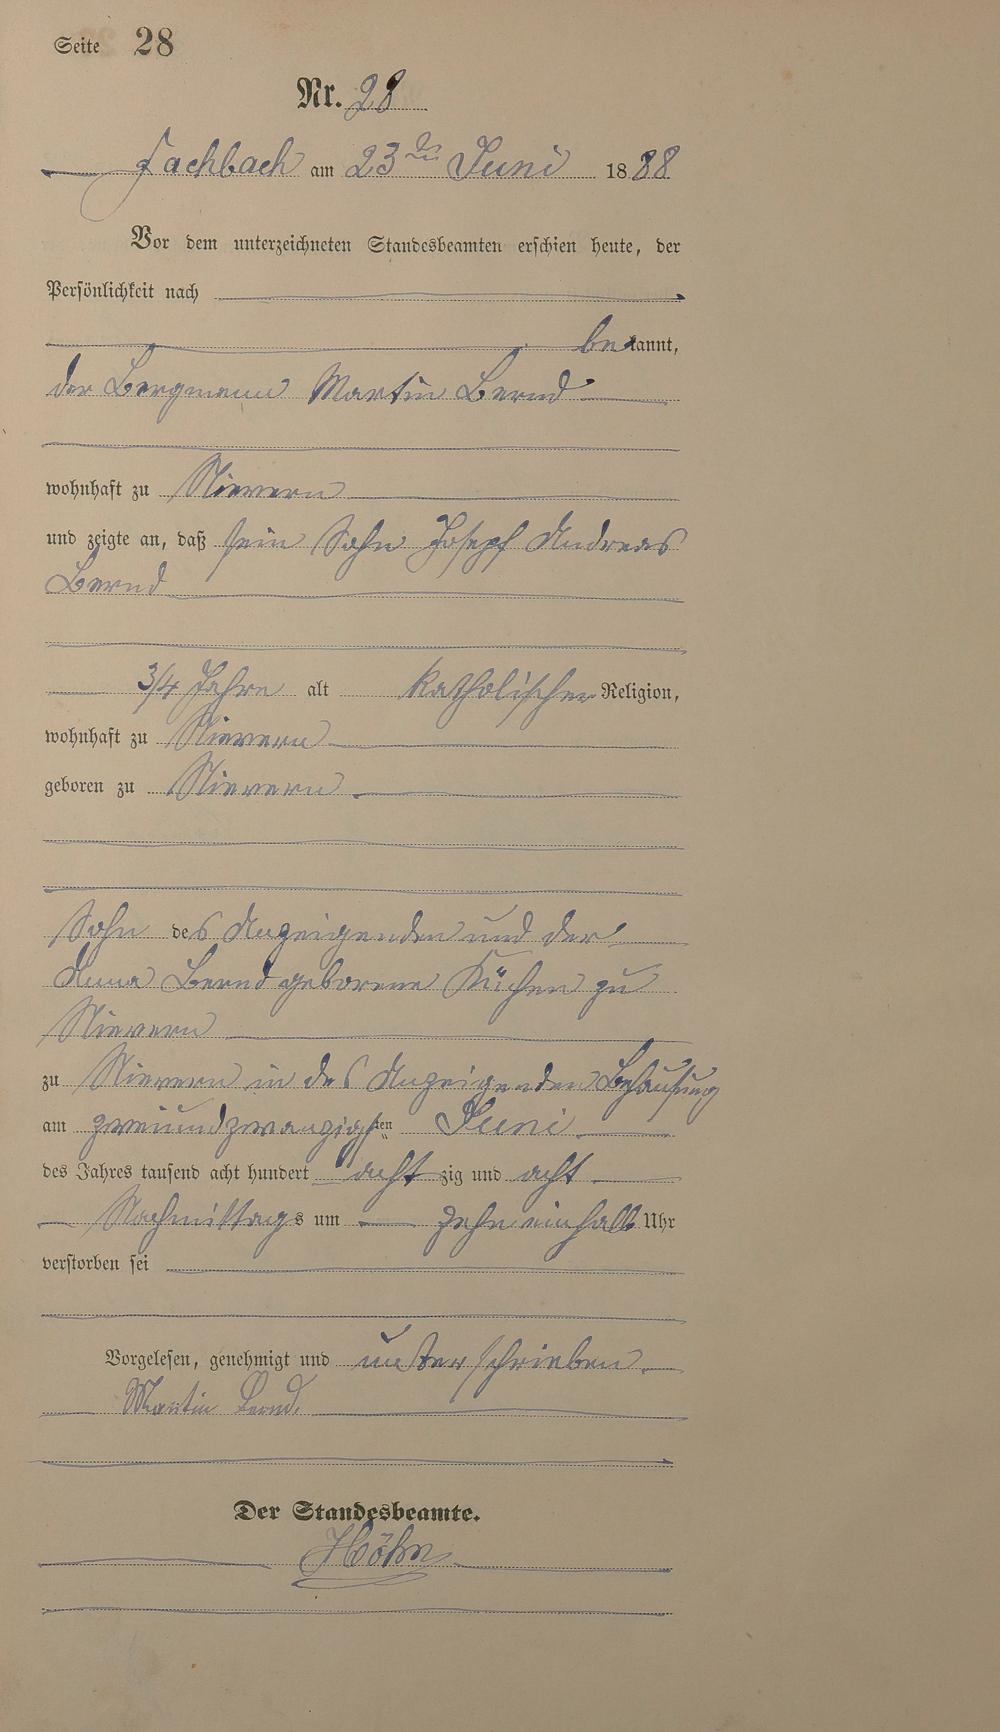 Seite 28
Nr. 28
Fachbach am 23ten Juni 1888
Vor dem unterzeichneten Standesbeamten erschien heute, der
Persönlichkeit nach
bekannt,
der Bergmann Martin Bernd
wohnhaft zu Nievern
und zeigte an, daß sein Sohn Joseph Andreas
Bernd
3/4 Jahre alt katholischer Religion,
wohnhaft zu Nievern
geboren zu Nievern
Sohn des Anzeigenden und der
Anna Bernd geborene Küchen zu
Nievern
zu Nievern in des Anzeigenden Behausung
am zweiundzwanzigsten Juni
des Jahres tausend acht hundert achtzig und acht
Nachmittags um zehn einhalb Uhr
verstorben sei
Vorgelesen, genehmigt und unterschrieben
Martin Bernd.
Der Standesbeamte.
Höhn